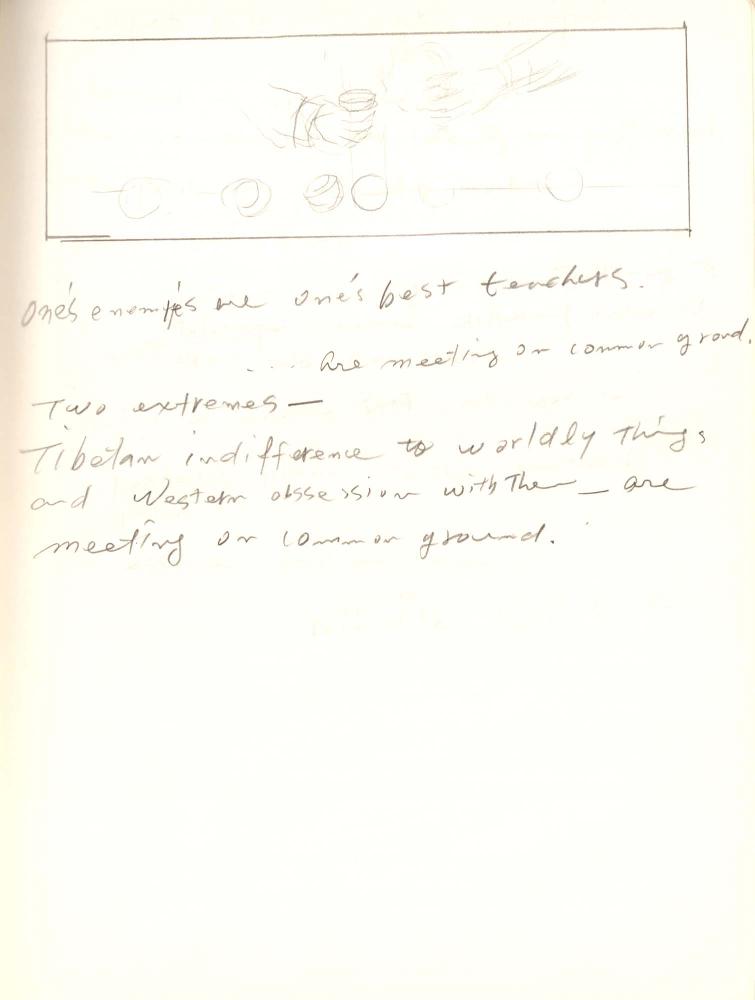 One's enemies are one's best teachers.
.... are meeting on common ground.
Two extremes —
Tibetan indifference to worldly things
and Western obssession with them — are
meeting on common ground.